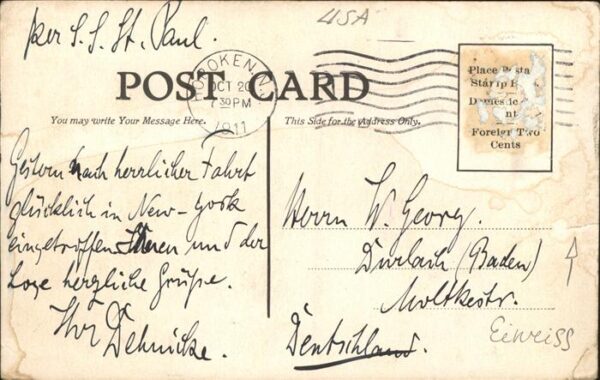 USA
per S.S. St. Paul.
HOBOKEN, N.J.
OCT 20
7 30 PM
1911
POST CARD
You may write Your Message Here.
This Side for the Address Only.
Place Posta
Stamp H
Domestic
nt
Foreign Two
Cents
Gestern nach herrlicher Fahrt
glücklich in New-York
eingetroffen Ihnen und der
Loge herzliche Grüße.
Ihr Dehnicke.
Herrn W. Georg.
Durlach (Baden)
Moltkestr.
Deutschland.
Eiweiss